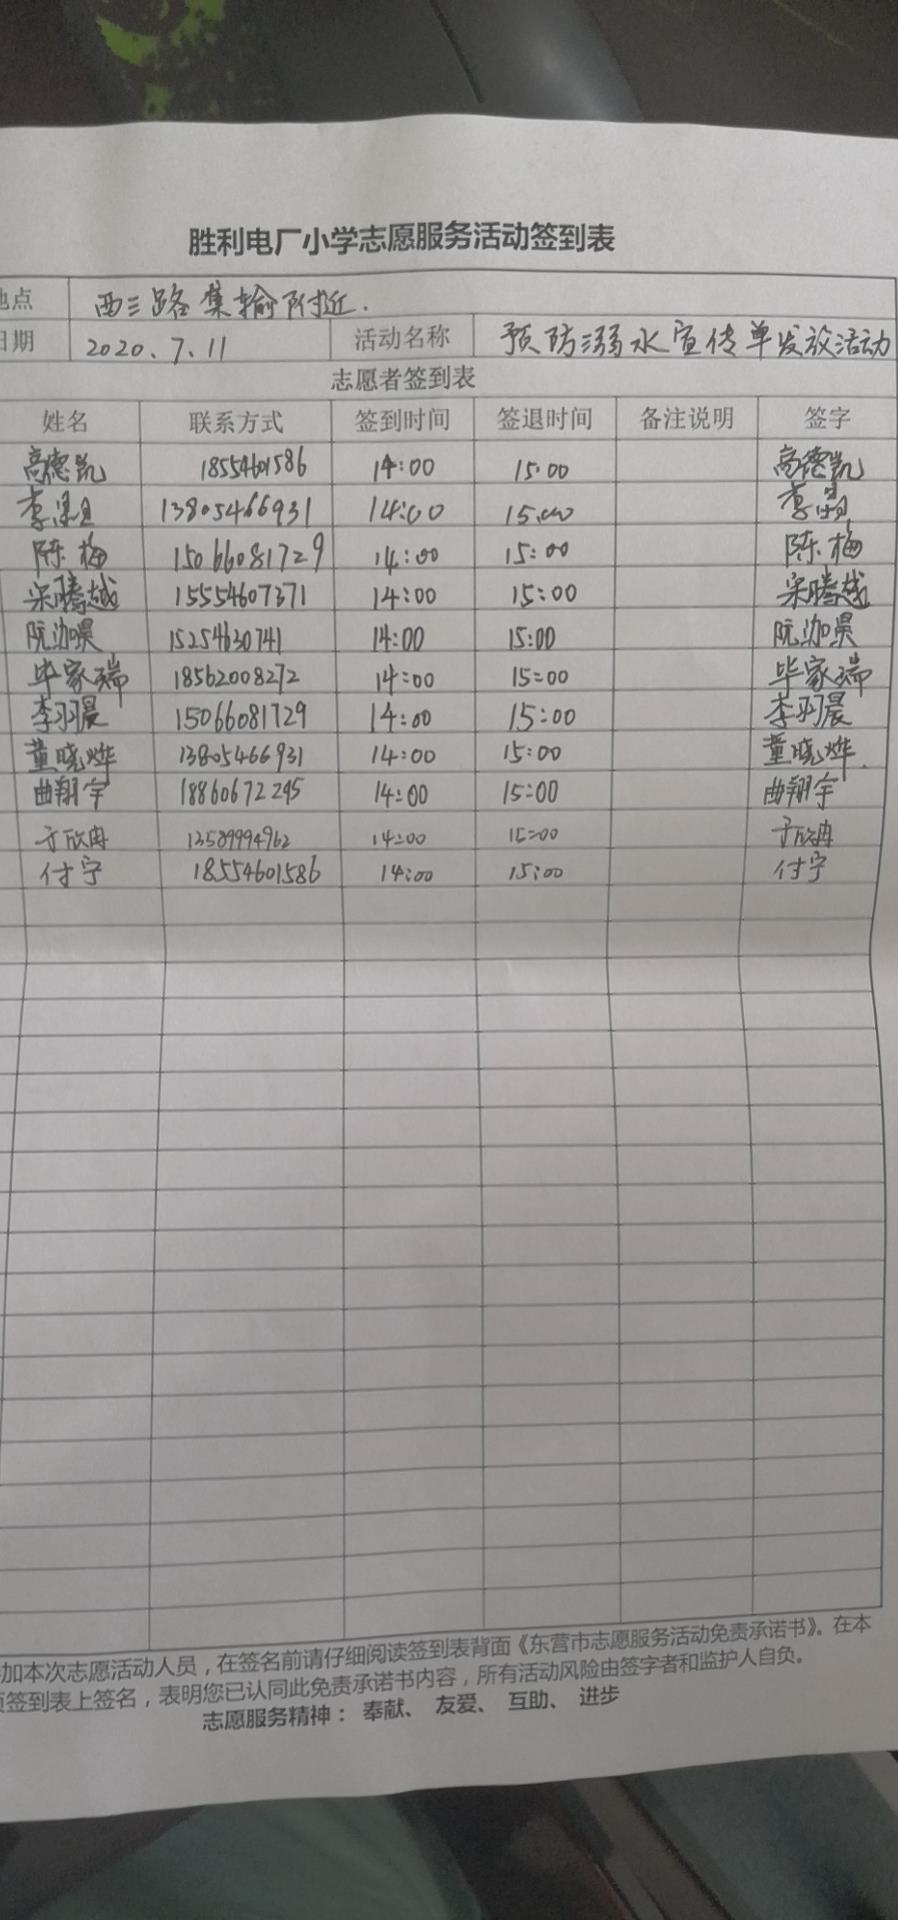 胜利电厂小学志愿服务活动签到表
地点 西三路集输附近.
日期 2020.7.11 活动名称 预防溺水宣传单发放活动
志愿者签到表
姓名 联系方式 签到时间 签退时间 备注说明 签字
高德凯 18554601586 14:00 15:00 高德凯
李 13805466931 14:00 15:00 李
陈梅 15066081729 14:00 15:00 陈梅
宋腾越 15554607371 14:00 15:00 宋腾越
阮 15254630741 14:00 15:00 阮
毕家瑞 18562008272 14:00 15:00 毕家瑞
李羽晨 15066081729 14:00 15:00 李羽晨
董晓烨 13805466931 14:00 15:00 董晓烨.
曲翔宇 18860672295 14:00 15:00 曲翔宇
于欣冉 13589994962 14:00 15:00 于欣冉
付宁 18554601586 14:00 15:00 付宁
加本次志愿活动人员，在签名前请仔细阅读签到表背面《东营市志愿服务活动免责承诺书》。在本
签到表上签名，表明您已认同此免责承诺书内容，所有活动风险由签字者和监护人自负。
志愿服务精神： 奉献、 友爱、 互助、 进步